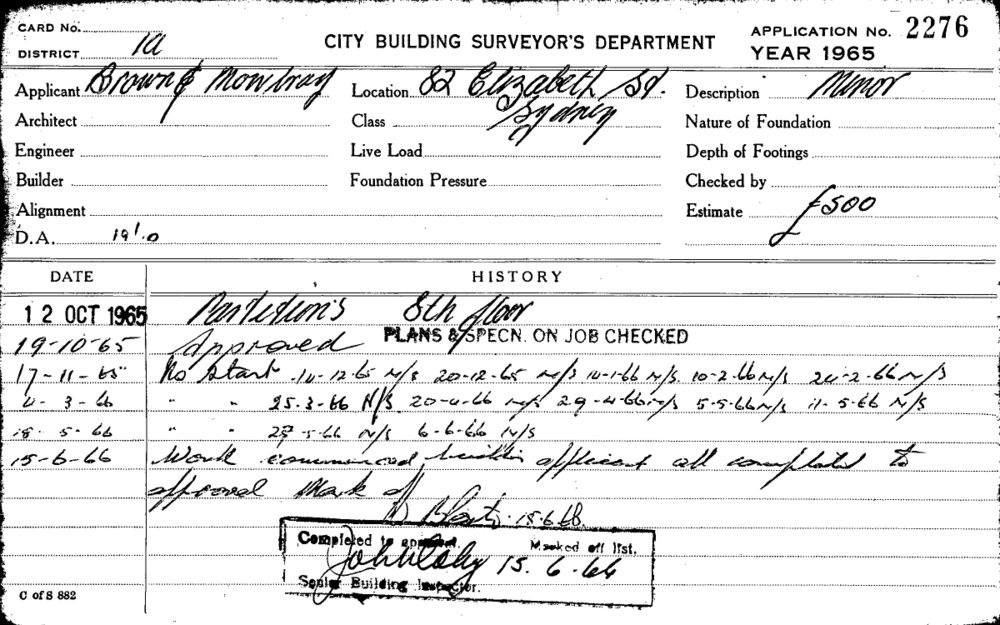 CARD No.
DISTRICT 1a
CITY BUILDING SURVEYOR'S DEPARTMENT
APPLICATION No. 2276
YEAR 1965
Applicant Brown & Mowbray
Location 82 Elizabeth St. Sydney
Description Minor
Architect
Class
Nature of Foundation
Engineer
Live Load
Depth of Footings
Builder
Foundation Pressure
Checked by
Alignment
Estimate £500
D.A.
DATE HISTORY
12 OCT 1965 Partitions 8th floor
19-10-65 Approved PLANS & SPECN. ON JOB CHECKED
17-11-65 No Start 20-12-65 N/S 10-2-66 N/S 24-2-66 N/S
3-66 " " 25-3-66 N/S 20-4-66 N/S 29-4-66 N/S 5-5-66 N/S 11-5-66 N/S
18-5-66 " " N/S 6-6-66 N/S
15-6-66 Work commenced applicant all completed to
approval Mark off
15.6.66
Completed to approval. Marked off list.
15.6.66
Senior Building Inspector.
C of S 882